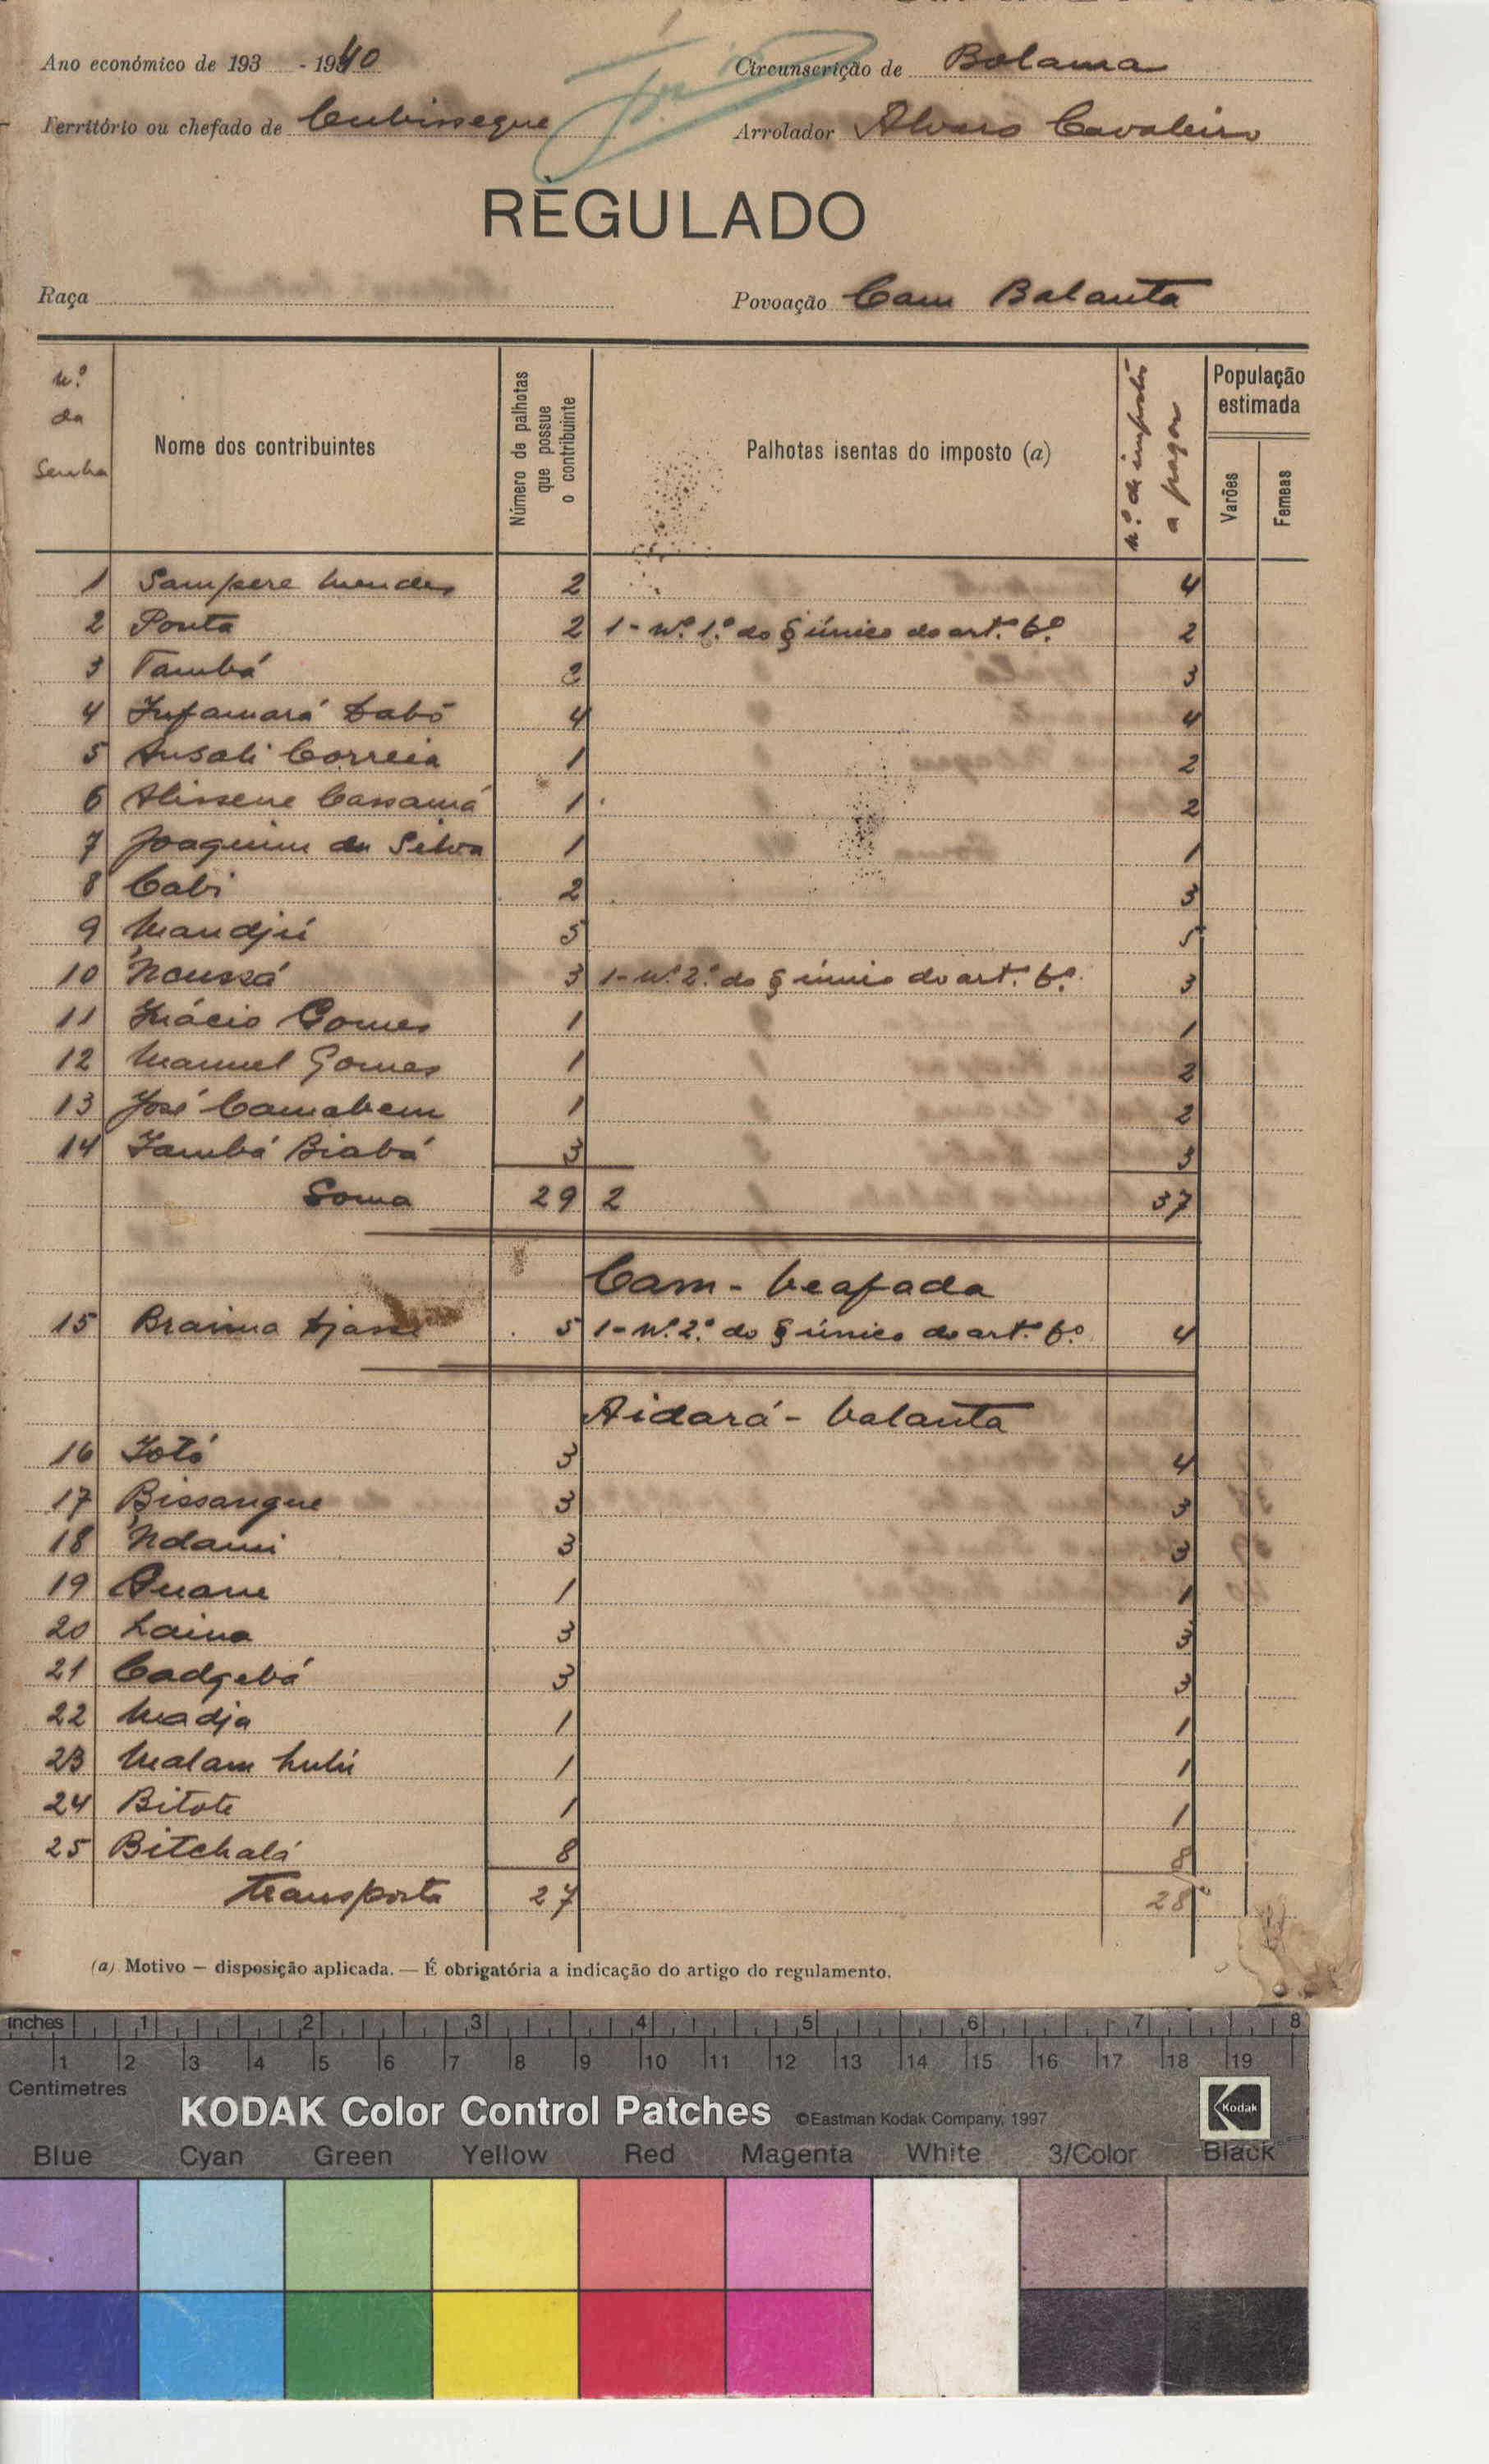 Ano económico de 193 - 1940 Circunscrição de Bolama
Território ou chefado de Cubisseque Arrolador Alvaro Cavaleiro
REGULADO
Raça Povoação Cam Balanta
N.º da Senha Nome dos contribuintes Número de palhotas que possue o contribuinte Palhotas isentas do imposto (a) N.º de impostos a pagar População estimada Varões Femeas
1 Sampere Mendes 2 4
2 Ponta 2 1 - Nº 1.º do § único do art.º 6º 2
3 Tambá 2 3
4 Infamará Dabó 4 4
5 Ansali Correia 1 2
6 Alissene Cassamá 1 2
7 Joaquim da Silva 1 1
8 Cabi 2 3
9 Mandjú 5 5
10 'Ncussá 3 1 - Nº 2.º do § único do art.º 6º 3
11 Inácio Gomes 1 1
12 Manuel Gomes 1 2
13 José Camabem 1 2
14 Iambá Biabá 3 3
Soma 29 2 37
Cam - beafada
15 Braima Djassi 5 1 - Nº 2.º do § único do art.º 6º 4
Aidará - balanta
16 Totó 3 4
17 Bissangue 3 3
18 'Ndami 3 3
19 Quane 1 1
20 Laina 3 3
21 Cadgebá 3 3
22 Madja 1 1
23 Malam Lulú 1 1
24 Bitote 1 1
25 Bitchalá 8 8
Transporte 27 28
(a) Motivo — disposição aplicada. — É obrigatória a indicação do artigo do regulamento.
inches 1 2 3 4 5 6 7 8
1 2 3 4 5 6 7 8 9 10 11 12 13 14 15 16 17 18 19
Centimetres
KODAK Color Control Patches ©Eastman Kodak Company, 1997 Kodak
Blue Cyan Green Yellow Red Magenta White 3/Color Black